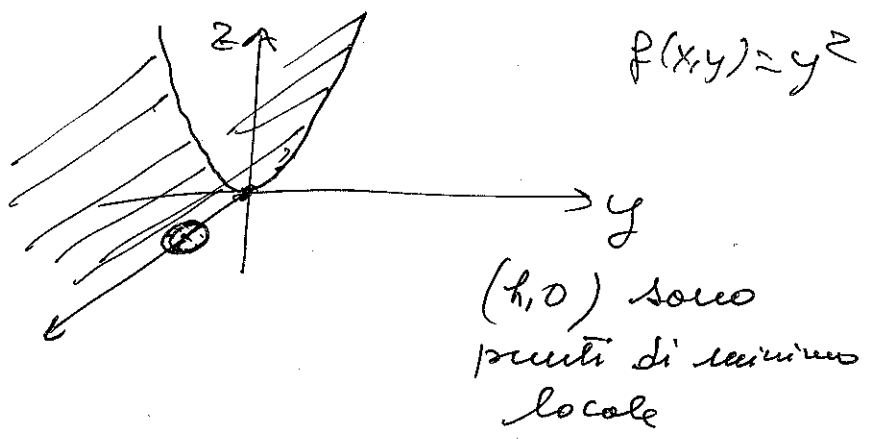 z
f(x,y) = y²
y
(h,0) sono
punti di minimo
locale